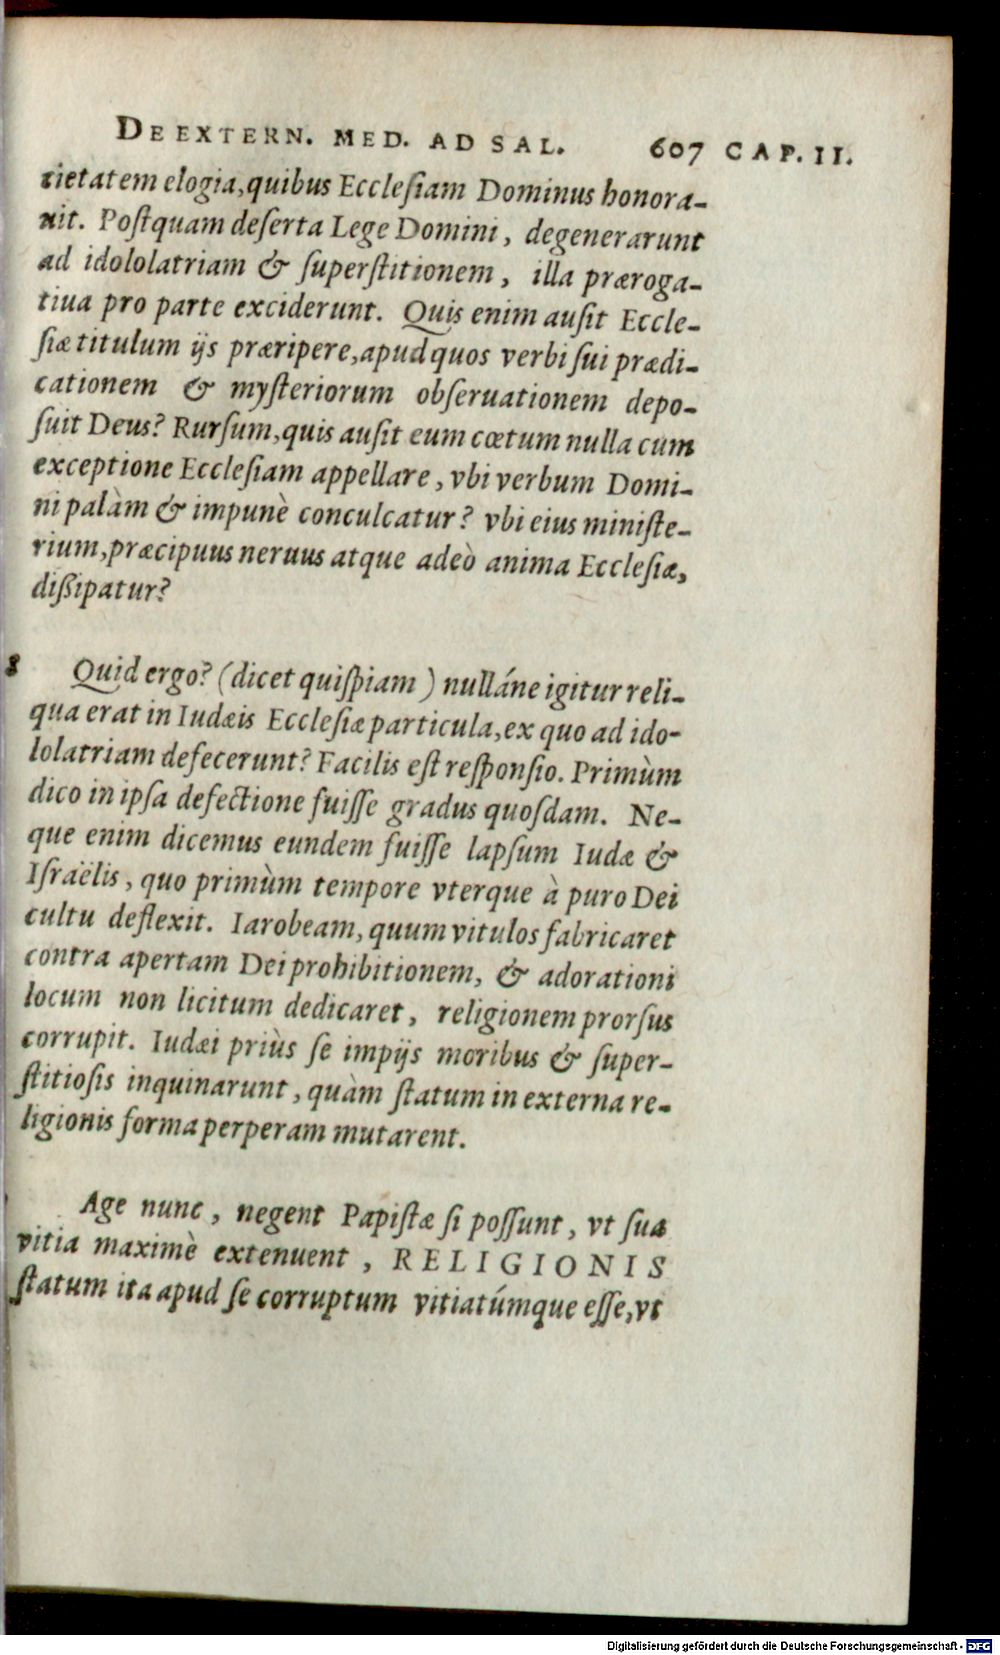 DE EXTERN. MED. AD SAL. 607 CAP. II.
rietatem elogia, quibus Ecclesiam Dominus honora-
uit. Postquam deserta Lege Domini, degenerarunt
ad idololatriam & superstitionem, illa præroga-
tiua pro parte exciderunt. Quis enim ausit Eccle-
siæ titulum ijs præripere, apud quos verbi sui prædi-
cationem & mysteriorum obseruationem depo-
suit Deus? Rursum, quis ausit eum cœtum nulla cum
exceptione Ecclesiam appellare, vbi verbum Domi-
ni palàm & impunè conculcatur? vbi eius ministe-
rium, præcipuus neruus atque adeò anima Ecclesiæ,
dissipatur?
8 Quid ergo? (dicet quispiam) nulláne igitur reli-
qua erat in Iudæis Ecclesiæ particula, ex quo ad ido-
lolatriam defecerunt? Facilis est responsio. Primùm
dico in ipsa defectione fuisse gradus quosdam. Ne-
que enim dicemus eundem fuisse lapsum Iudæ &
Israëlis, quo primùm tempore vterque à puro Dei
cultu deflexit. Iarobeam, quum vitulos fabricaret
contra apertam Dei prohibitionem, & adorationi
locum non licitum dedicaret, religionem prorsus
corrupit. Iudæi priùs se impijs moribus & super-
stitiosis inquinarunt, quàm statum in externa re-
ligionis forma perperam mutarent.
Age nunc, negent Papistæ si possunt, vt sua
vitia maximè extenuent, RELIGIONIS
statum ita apud se corruptum vitiatúmque esse, vt
Digitalisierung gefördert durch die Deutsche Forschungsgemeinschaft - DFG